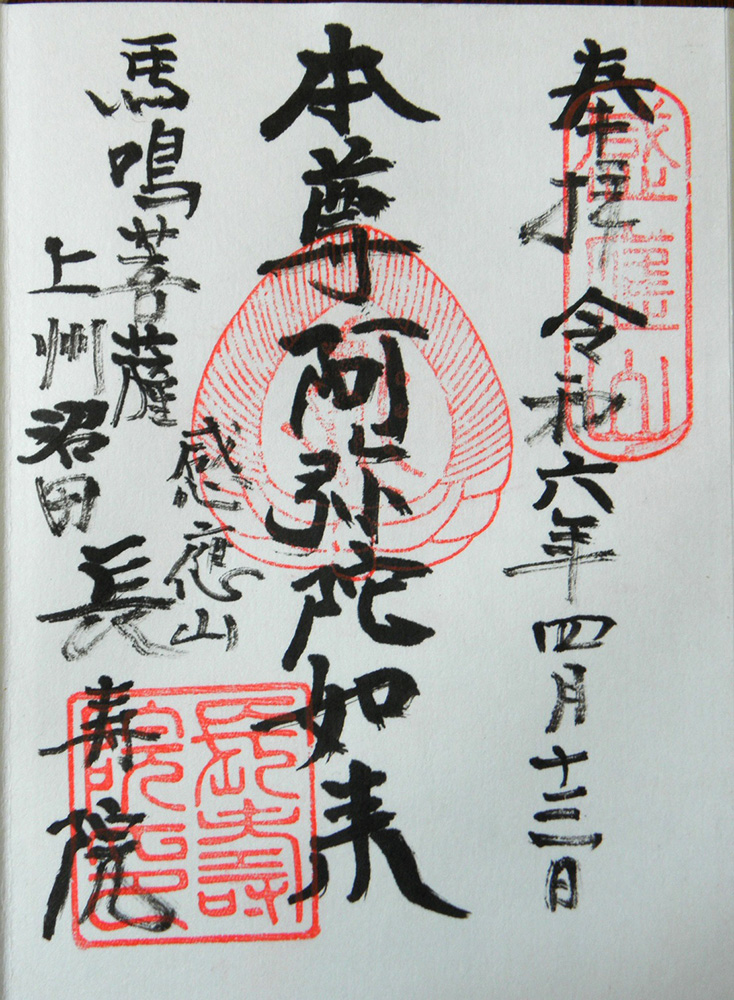 奉拝 令和六年四月十三日
感應山
本尊阿弥陀如来
馬鳴菩薩
感應山
上州沼田 長寿院
長壽院印